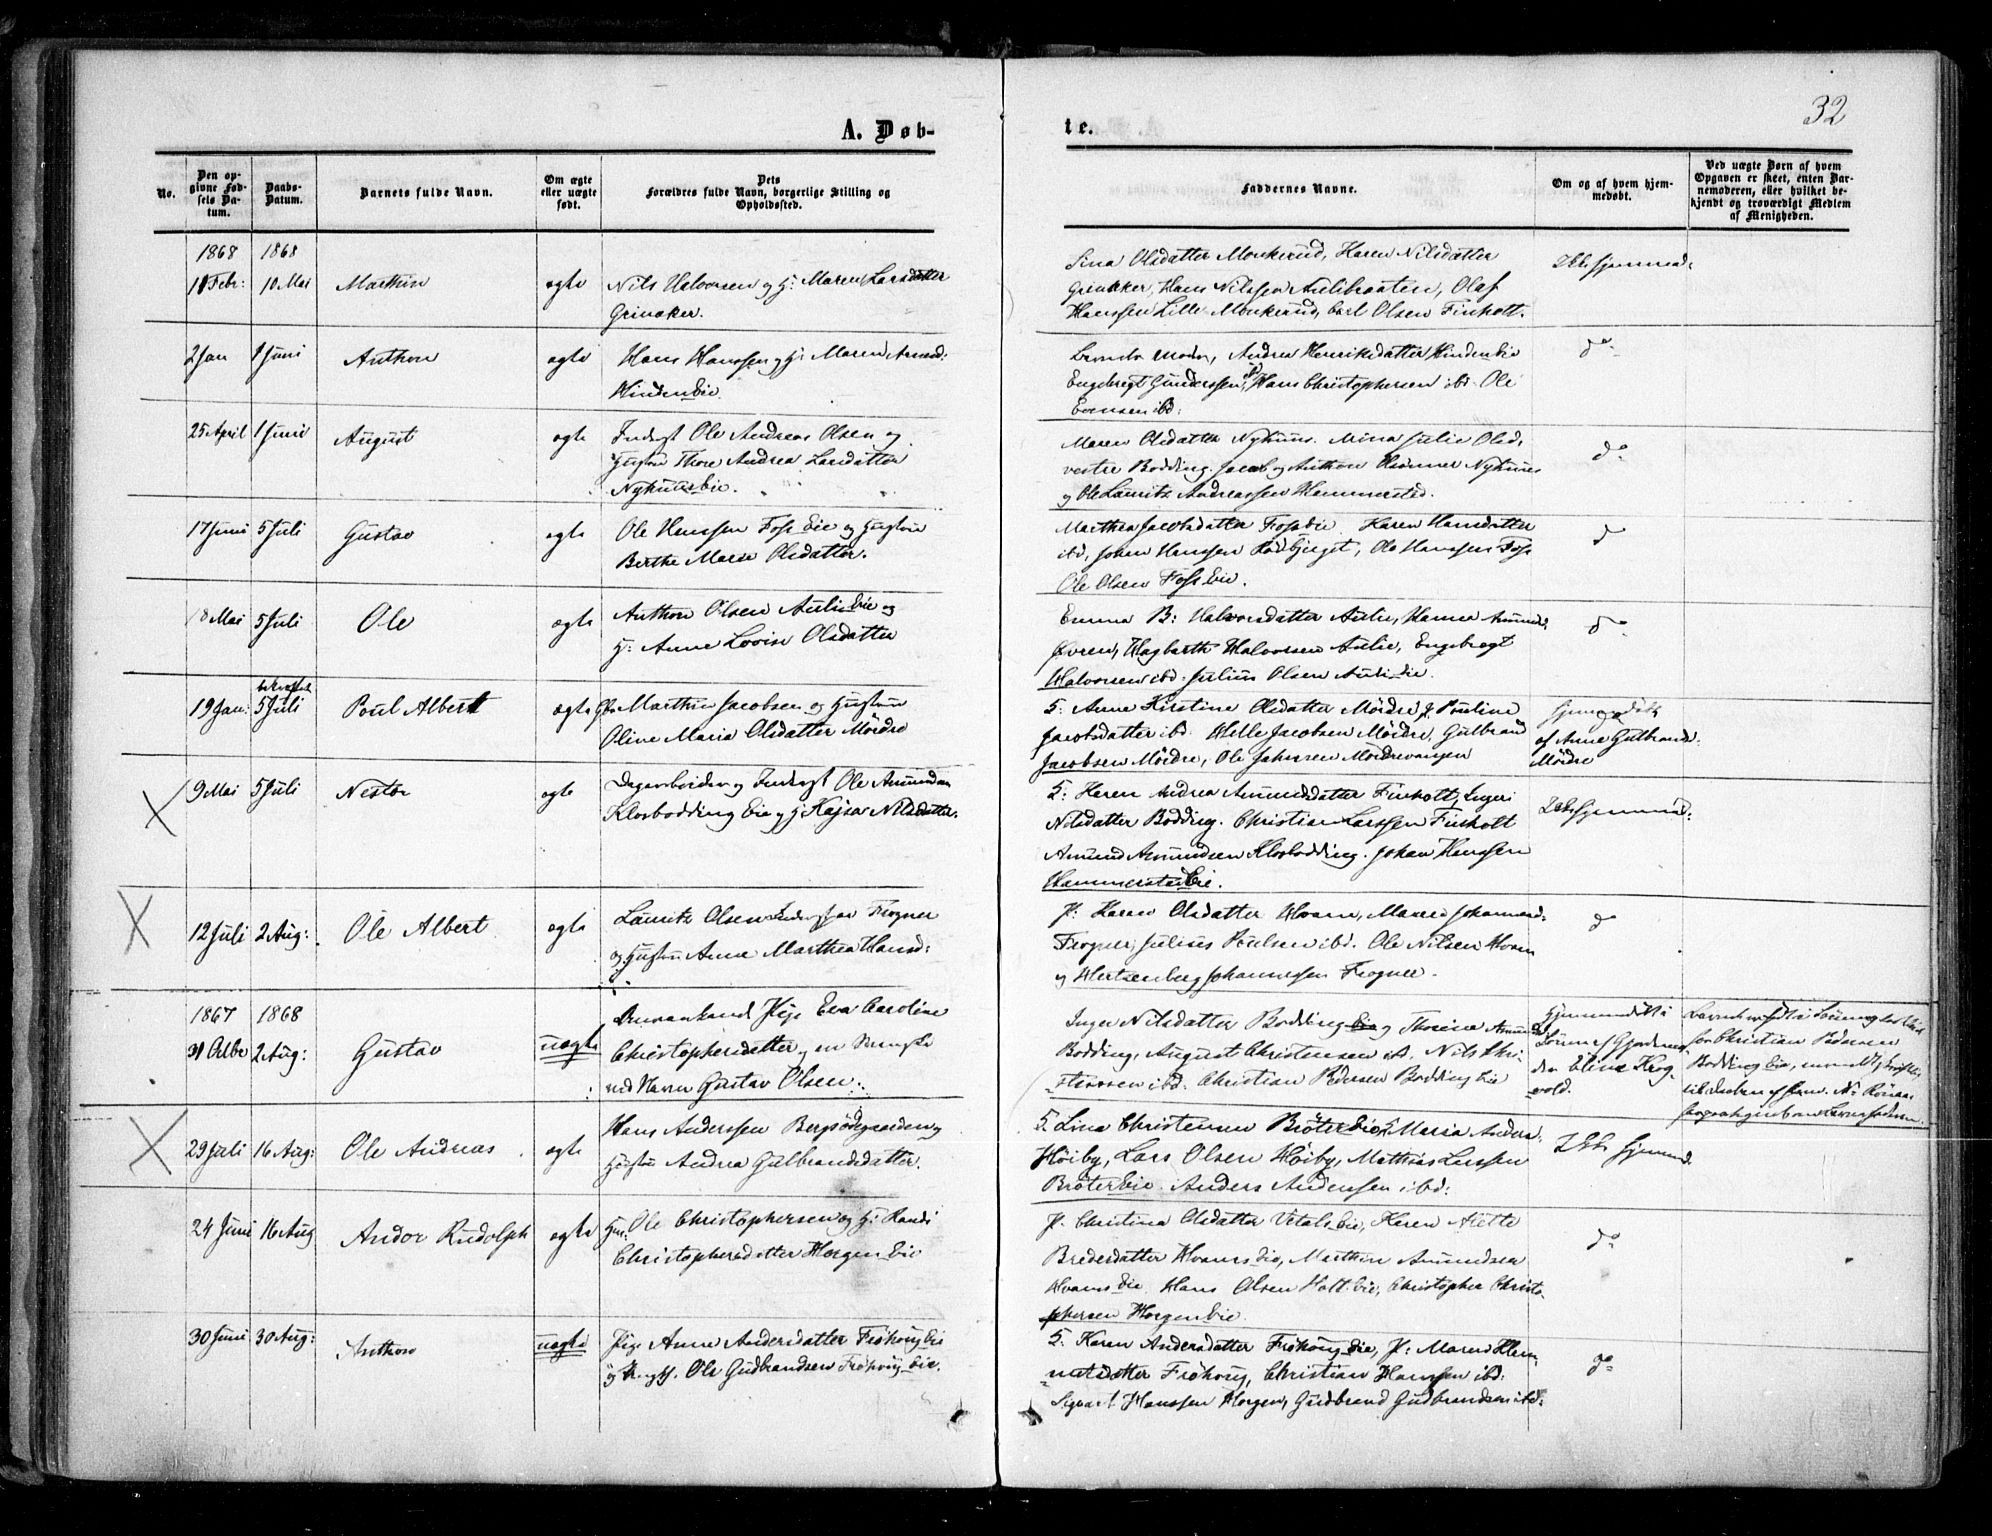 32
A. Døb-
te.
No.
Den op-
givne Fød-
sels Da-
tum.
Daabs-
Datum.
Barnets fulde Navn.
Om ægte
eller uægte
født.
Dets
Forældres fulde Navn, borgerlige Stilling og
Opholdssted.
Faddernes Navne.
Om og af hvem hjem-
medøbt.
Ved uægte Børn af hvem
Opgaven er skeet, enten Bar-
nemoderen, eller hvilket be-
kjendt og troværdigt Medlem
af Menigheden.
1868 1868
11 Febr: 10 Mai Marthin ægte Nils Halvorsen og H: Maren Larsdatter
Grinaker.
Sina Olsdatter Monkerud, Karen Nilsdatter
Grinaker, Hans Nilssen Aulibraaten, Olaf
Hanssen Lille Monkerud, Carl Olsen Finholt.
Ikke hjemmed:
2 Jan 1 Juni Anthon ægte Hans Hanssen og H: Maren Amund:
Hinden Eie
Barnets Moder, Andrea Henriksdatter Hinden Eie
Engebregt Gunderssen, Hans Christophersen ibd. Ole
Evensen ibd:
do
25 April 1 Juni August ægte Inderst Ole Andreas Olsen og
Hustru Thore Andrea Larsdatter
Nykuus Eie.
Maren Olsdatter Nykuus. Mina Julie Olsd.
vestre Bodding. Jacob og Anthon Nykuus
og Ole Lauritz Andreassen Hammersted.
do
17 Juni 5 Juli Gustav ægte Ole Hanssen Foss Eie og Hustru
Berthe Marie Olsdatter.
Marthea Jacobsdatter Foss Eie Karen Hansdatter
ibd, Johan Hanssen, Ole Hanssen Foss
Ole Olsen Foss Eie.
do
18 Mai 5 Juli Ole ægte Anthon Olsen Auli Eie og
H: Anne Lovise Olsdatter
Emma B: Halvorsdatter Aulie, Hanna Amunds:
Øvren, Hagbarth Halvorsen Aulie, Engebregt
Halvorsen ibd. Julius Olsen Auli Eie.
do
19 Jan: 5 Juli Poul Albert ægte Marthin Jacobsen og Hustru
Oline Maria Olsdatter Mördre
S: Anne Kirstine Olsdatter Mördre, J: Pouline
Jacobsdatter ibd. Helle Jacobsen Mördre, Gulbrand
Jacobsen Mördre, Ole Johnsen Mördrevangen
af Anne Gulbrands:
Mördre
9 Mai 5 Juli Nestor ægte Dagarbeider og Inderst Ole Amundsen
Klosbodding Eie og H: Kajsa Nilsdatter.
S: Karen Andrea Amundsdatter Finholt, Ingeri
Nilsdatter Bodding. Christian Larssen Finholt
Amund Amundsen Klosbodding. Johan Hanssen
Hammerstad Eie.
Ikke hjemmed:
12 Juli 2 Aug: Ole Albert ægte Lauritz Olsen Frogner
og Hustru Anne Marthea Hansd:
J: Karen Olsdatter Hvam, Maren Johannesd:
Frogner, Julius Poulsen ibd. Ole Nilsen Hvam
og Hertzenberg Johannessen Frogner.
do
1867 1868
31 Octbr 2 Aug: Gustav uægte Pige Eva Caroline
Christophersdatter og en Svenske
ved Navn Gustav Olsen.
Inger Nilsdatter Bodding Eie og Thorina Amunds
Bodding, August Christensen ibd. Nils Chri-
stenssen ibd. Christian Pedersen Bodding Eie
Hjemmedøbt i
Sörum af Gjordemo-
der Eline Krog-
vold.
for Christian Pedersen
Bodding Eie
29 Juli 16 Aug: Ole Andreas ægte Hans Anderssen Bergsödegaarden og
Hustru Andrea Gulbrandsdatter.
S. Lina Christensen Bröter Eie, S: Maria Anders.
Höiby, Lars Olsen Höiby, Matthias Larssen
Bröter Eie. Anders Andersen ibd:
Ikke hjemmed.
24 Juni 16 Aug Andor Rudolph ægte Ole Christophersen og H: Randi
Christophersdatter Horgen Eie
J. Christina Olsdatter Vetals Eie, Karen Anette
Bredesdatter Hvams Eie, Marthin Amundsen
Hvams Eie. Hans Olsen Holt Eie, Christopher Christo-
phersen Horgen Eie.
do
30 Juni 30 Aug: Anthon uægte Pige Anne Andersdatter Fröhoug Eie
og Ungk. Ole Gudbrandsen Fröhoug Eie.
S. Karen Andersdatter Fröhoug Eie, J: Maren Klem-
metsdatter Fröhoug, Christian Hanssen ibd:
Sigvart Hanssen Horgen, Gudbrand Gudbrandsen ibd:
do